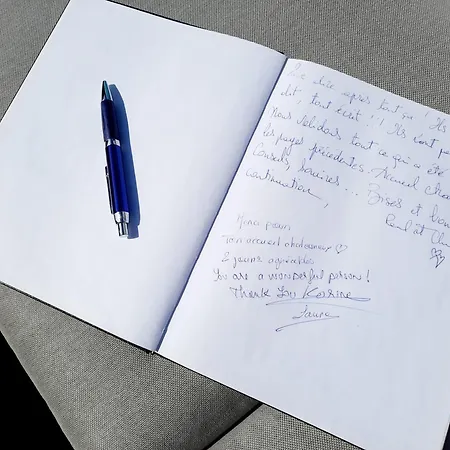 dire après tout ça ! Ils
dit, tout écrit ! ! Ils ont
Nous validons tout ce qui a été
les pages précédentes. Accueil
Conseils, sourires ... Bises et
continuation,
et
Merci pour
Ton accueil chaleureux ♡
2 jours agréables
You are a wonderful person !
Thank You Korine
Laura